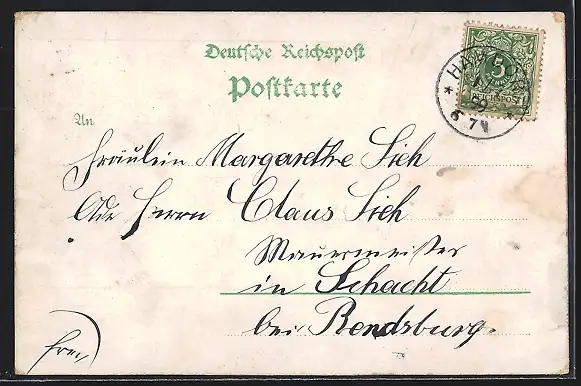 Deutsche Reichspost
Postkarte
An
Fräulein Margarethe Sieh
Adr Herrn Claus Sieh
Mauermeister
in Schacht
bei Rendsburg.
frei
5
REICHSPOST
* HAM
6 7N